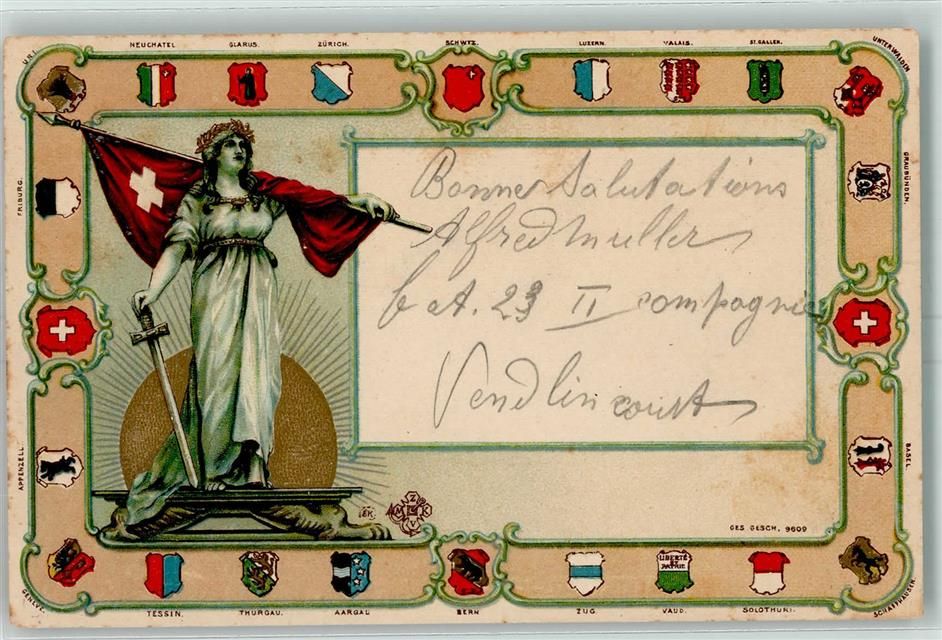 NEUCHATEL
GLARUS.
ZÜRICH.
SCHWYZ.
LUZERN.
VALAIS.
ST. GALLEN.
URI.
UNTERWALDEN
FRIBURG.
GRAUBÜNDEN.
Bonne Salutations
Alfred Muller
bat. 23 II compagnie
Vendlincourt
APPENZELL.
BASEL.
EK
M Z K V
GES GESCH, 9609
LIBERTÉ
ET
PATRIE
GENÈVE.
TESSIN.
THURGAU.
AARGAU
BERN
ZUG.
VAUD.
SOLOTHURN.
SCHAFFHAUSEN.